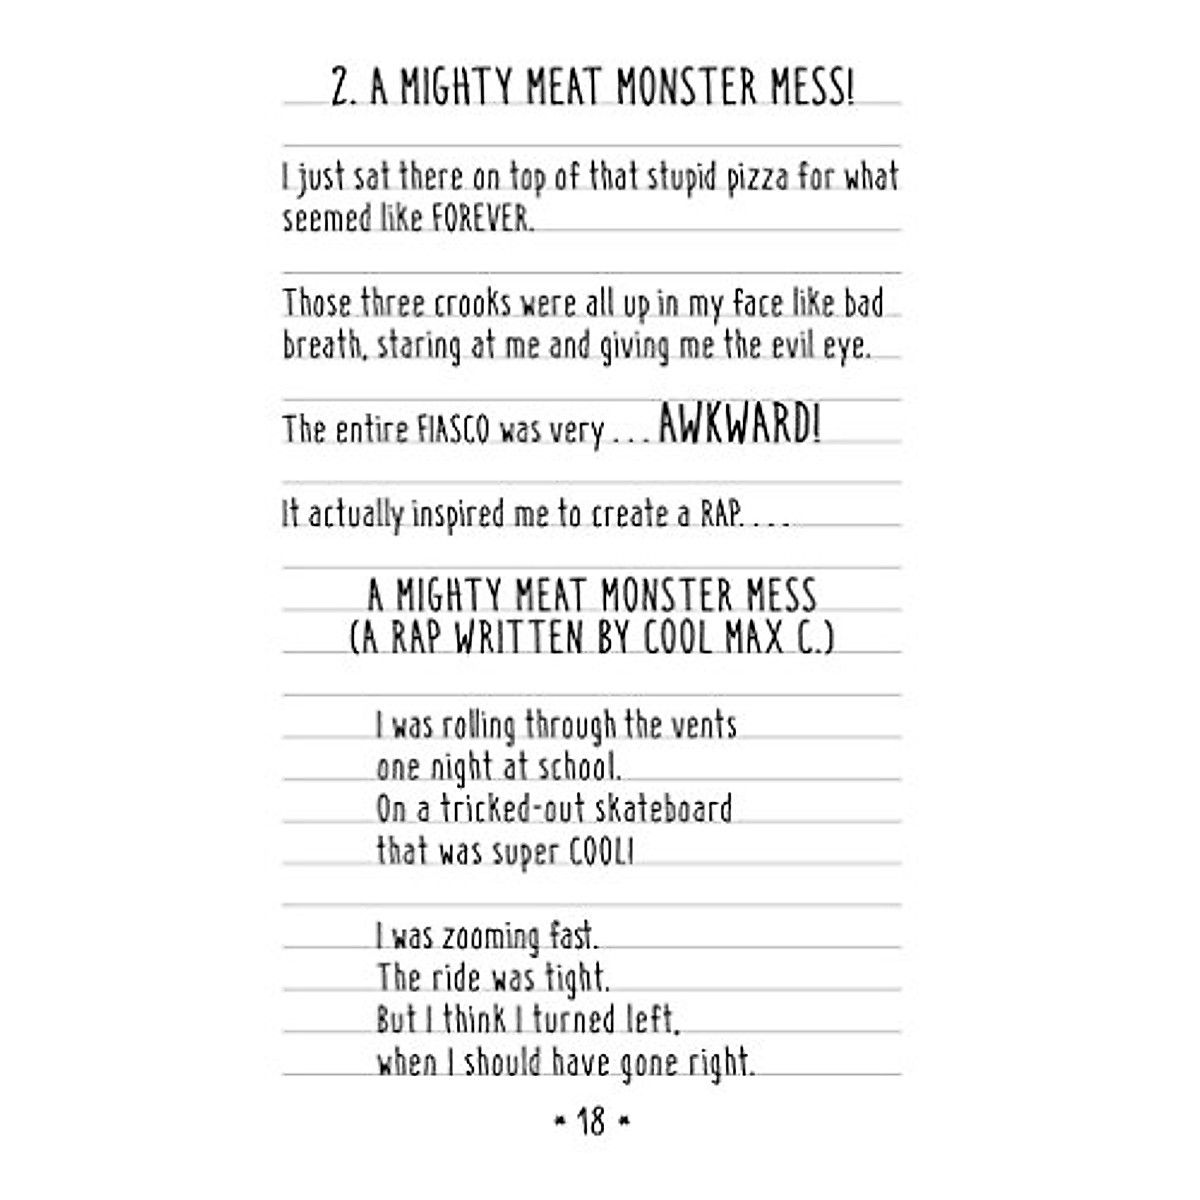 2. A MIGHTY MEAT MONSTER MESS!
I just sat there on top of that stupid pizza for what
seemed like FOREVER.
Those three crooks were all up in my face like bad
breath, staring at me and giving me the evil eye.
The entire FIASCO was very . . . AWKWARD!
It actually inspired me to create a RAP. . . .
A MIGHTY MEAT MONSTER MESS
(A RAP WRITTEN BY COOL MAX C.)
I was rolling through the vents
one night at school.
On a tricked-out skateboard
that was super COOL!
I was zooming fast.
The ride was tight.
But I think I turned left,
when I should have gone right.
- 18 -